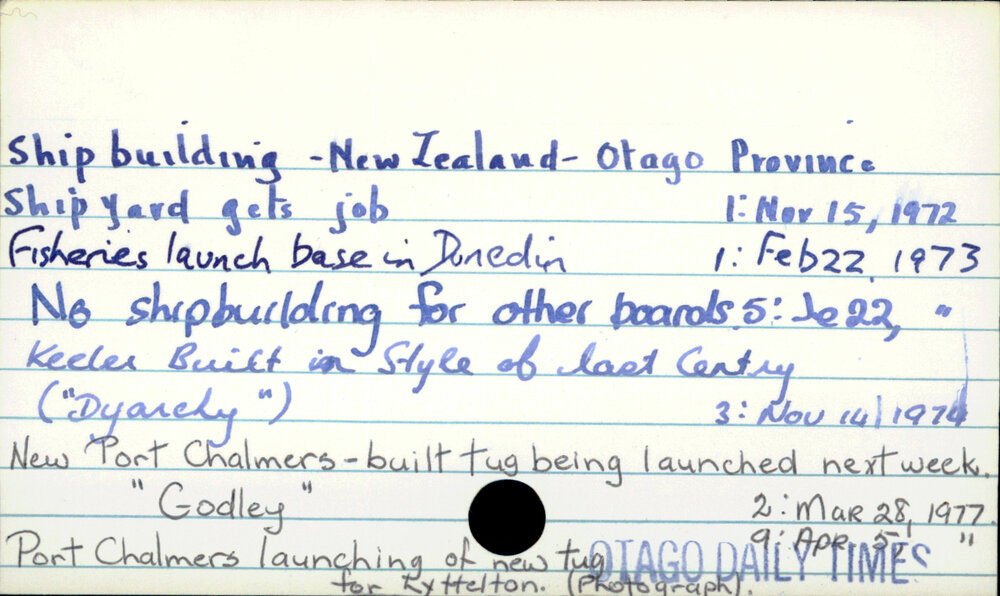 Ship building - New Zealand - Otago Province
Ship yard gets job 1: Nov 15, 1972
Fisheries launch base in Dunedin 1: Feb 22, 1973
No shipbuilding for other boards. 5: Je 22, "
Keeler Built in Style of last Centry
("Dyarchy") 3: Nov 14, 1974
New Port Chalmers - built tug being launched next week.
"Godley" 2: Mar 28, 1977
9: Apr 5, "
Port Chalmers launching of new tug
for Lyttelton. (Photograph).
OTAGO DAILY TIMES